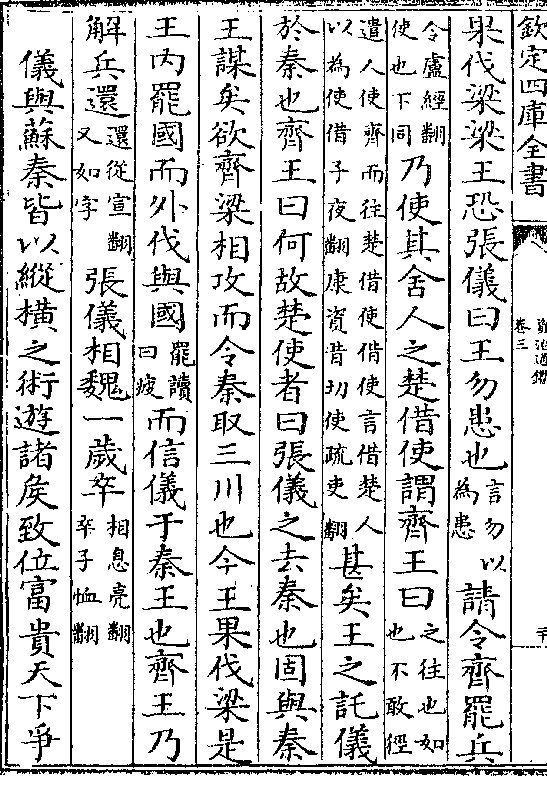 欽定四庫全書
資治通鑑
卷三
果伐梁梁王恐張儀曰王勿患也言勿以為患請令齊罷兵
令盧經翻使也下同乃使其舍人之楚借使謂齊王曰之往也如也不敢徑
遣人使齊而往楚借使借使言借楚人以為使借子夜翻康資昔切使疏吏翻甚矣王之託儀
於秦也齊王曰何故楚使者曰張儀之去秦也固與秦
王謀矣欲齊梁相攻而令秦取三川也今王果伐梁是
王内罷國而外伐與國罷讀曰疲而信儀于秦王也齊王乃
解兵還還從宣翻又如字張儀相魏一歲卒相息亮翻卒子恤翻
儀與蘇秦皆以縱橫之術遊諸矦致位富貴天下爭